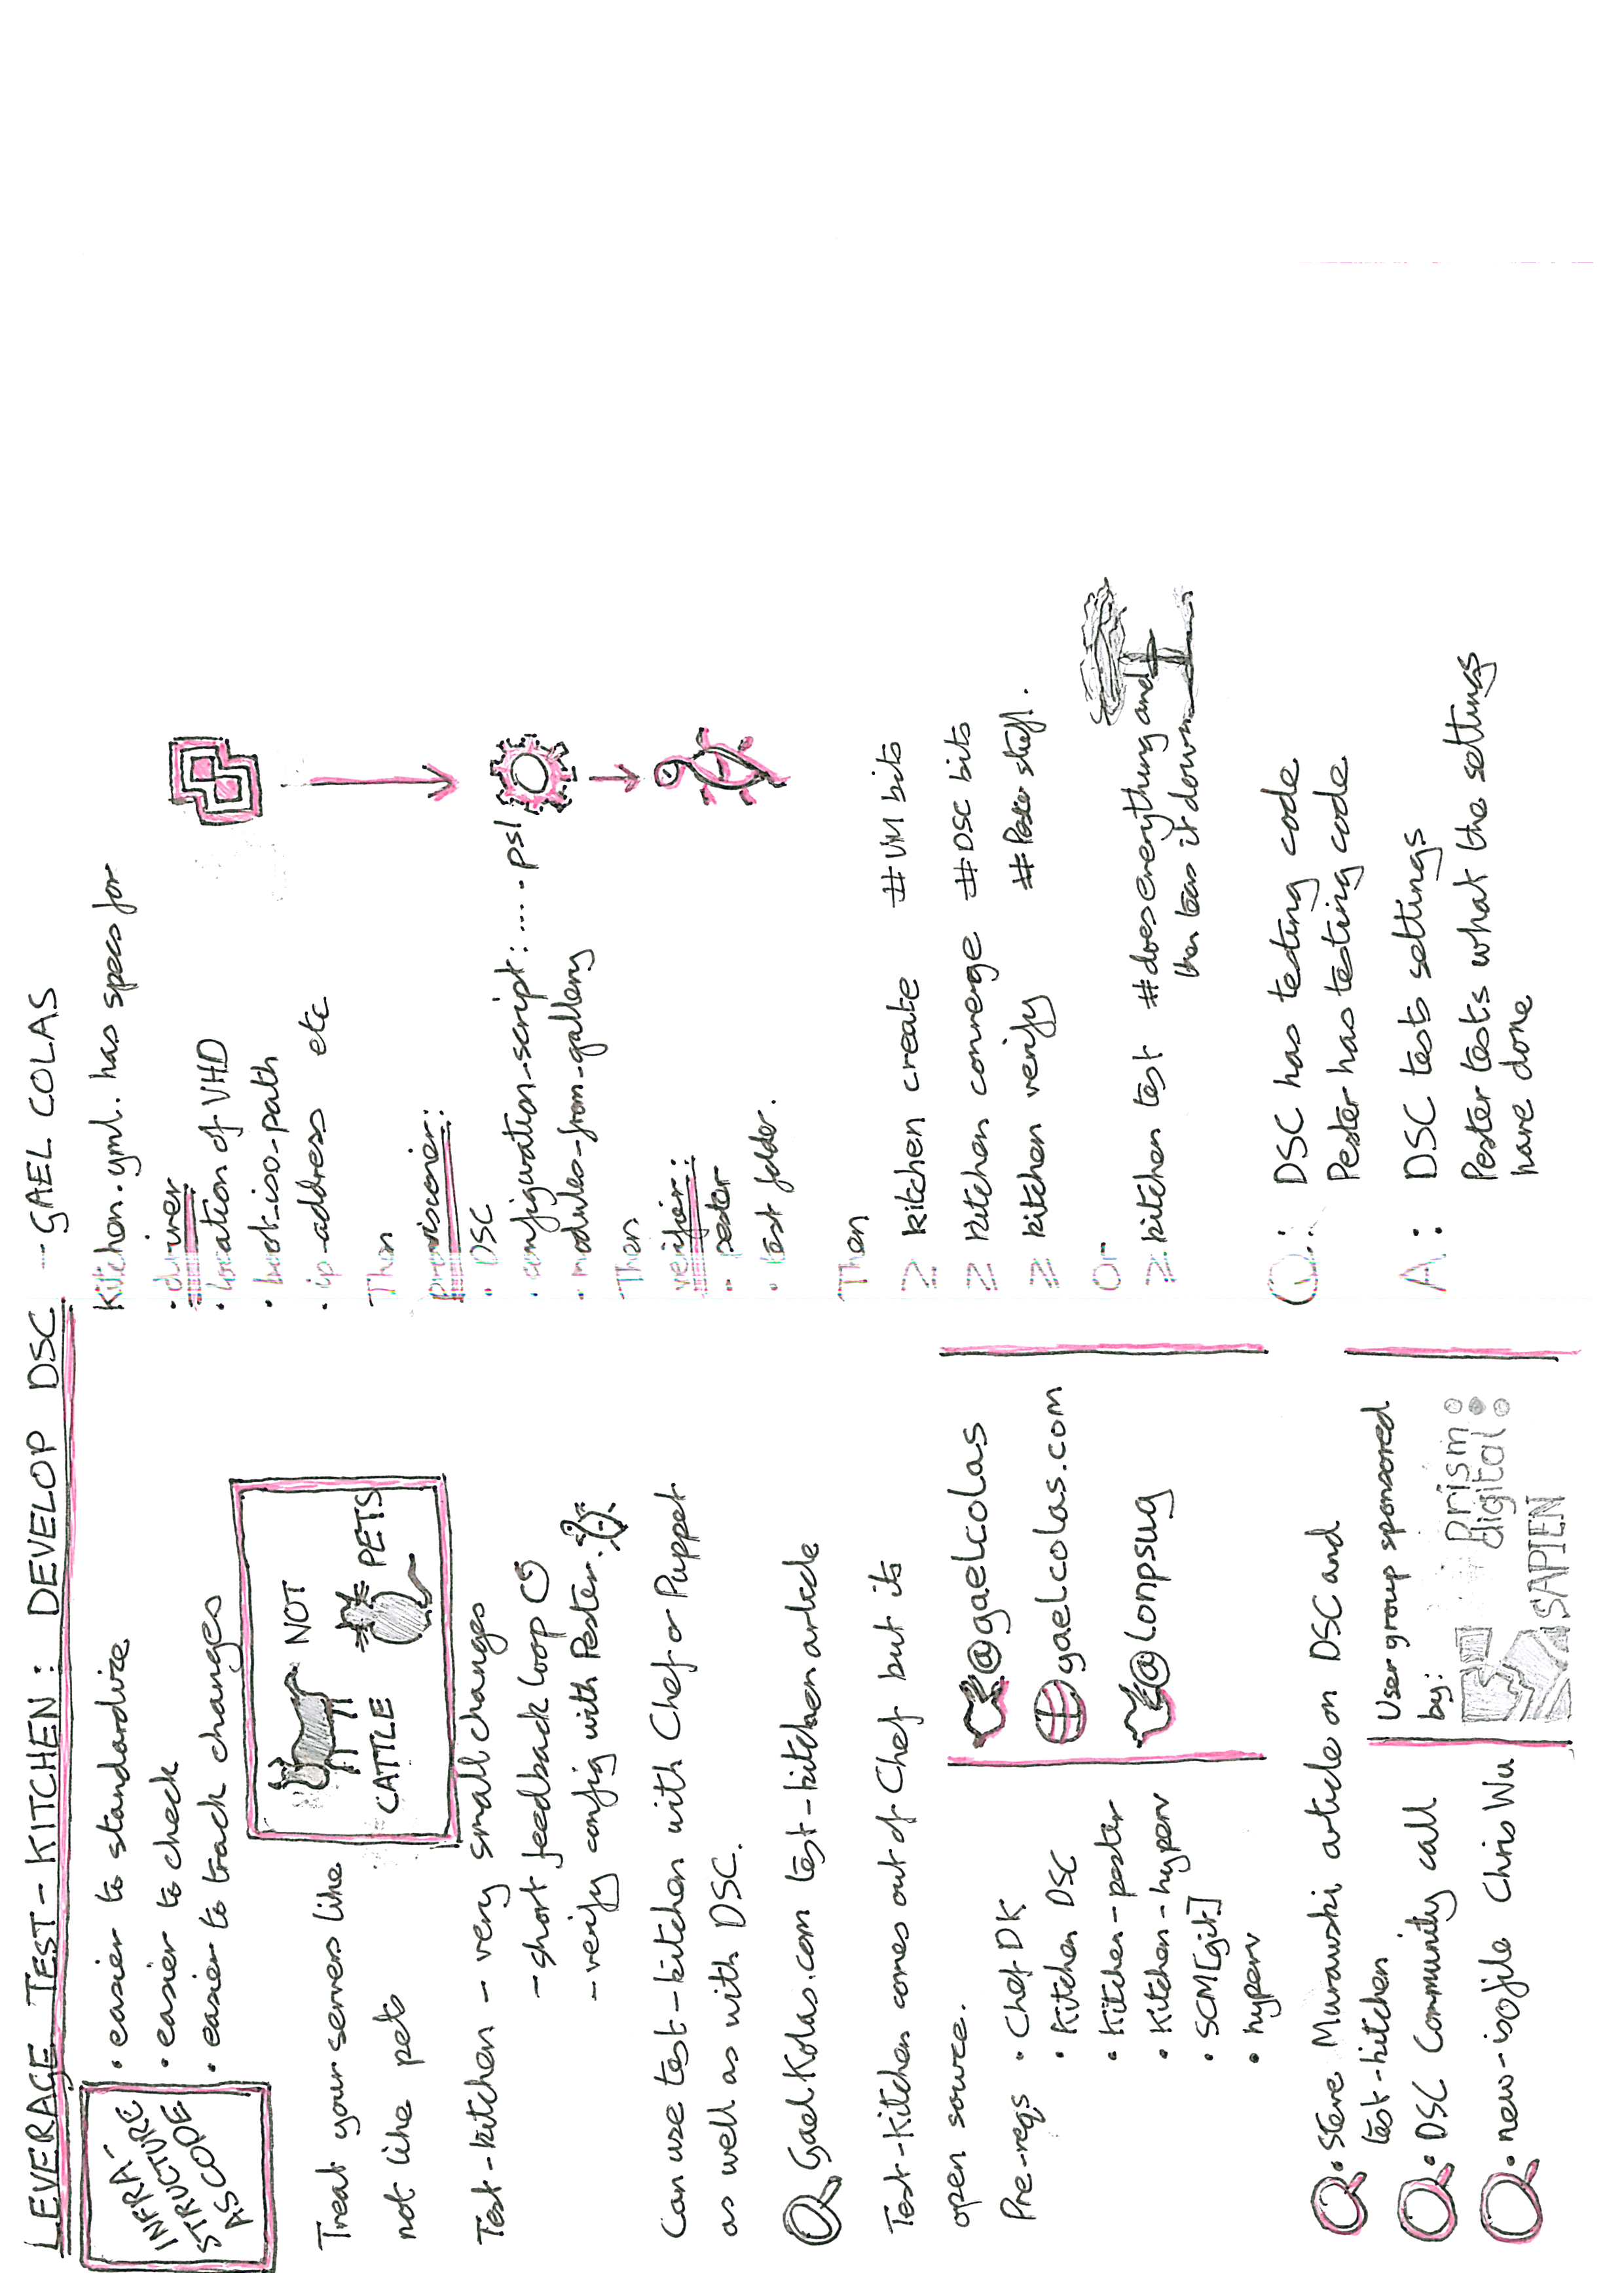 LEVERAGE TEST-KITCHEN: DEVELOP DSC - GAEL COLAS
INFRA-
STRUCTURE
AS CODE
• easier to standardize
• easier to check
• easier to track changes
Treat your servers like
not like pets
NOT
CATTLE
PETS
Test-kitchen - very small changes
- short feedback loop
- verify config with Pester.
Can use test-kitchen with Chef or Puppet
as well as with DSC.
Gael Kolas.com test-kitchen article
Test-Kitchen comes out of Chef but its
open source.
Pre-reqs • Chef DK
• Kitchen DSC
• Kitchen-pester
• Kitchen-hyperv
• SCM [git]
• hyperv
@gaelcolas
gaelcolas.com
@lonpsug
• Steve Murawski article on DSC and
test-kitchen
• DSC Community call
• new-isofile Chris Wu
User group sponsored
by:
prism
digital
SAPIEN
Kitchen.yml. has specs for
• driver
• location of VHD
• boot-iso-path
• ip-address etc
Then
provisioner:
• DSC
• configuration-script: .... .ps1
• modules-from-gallery
Then
verifier:
• pester
• test folder.
Then
> kitchen create # VM bits
> kitchen converge # DSC bits
> kitchen verify # Pester stuff.
Or
> kitchen test # does everything and
then tears it down
Q: DSC has testing code
Pester has testing code
A: DSC tests settings
Pester tests what the settings
have done